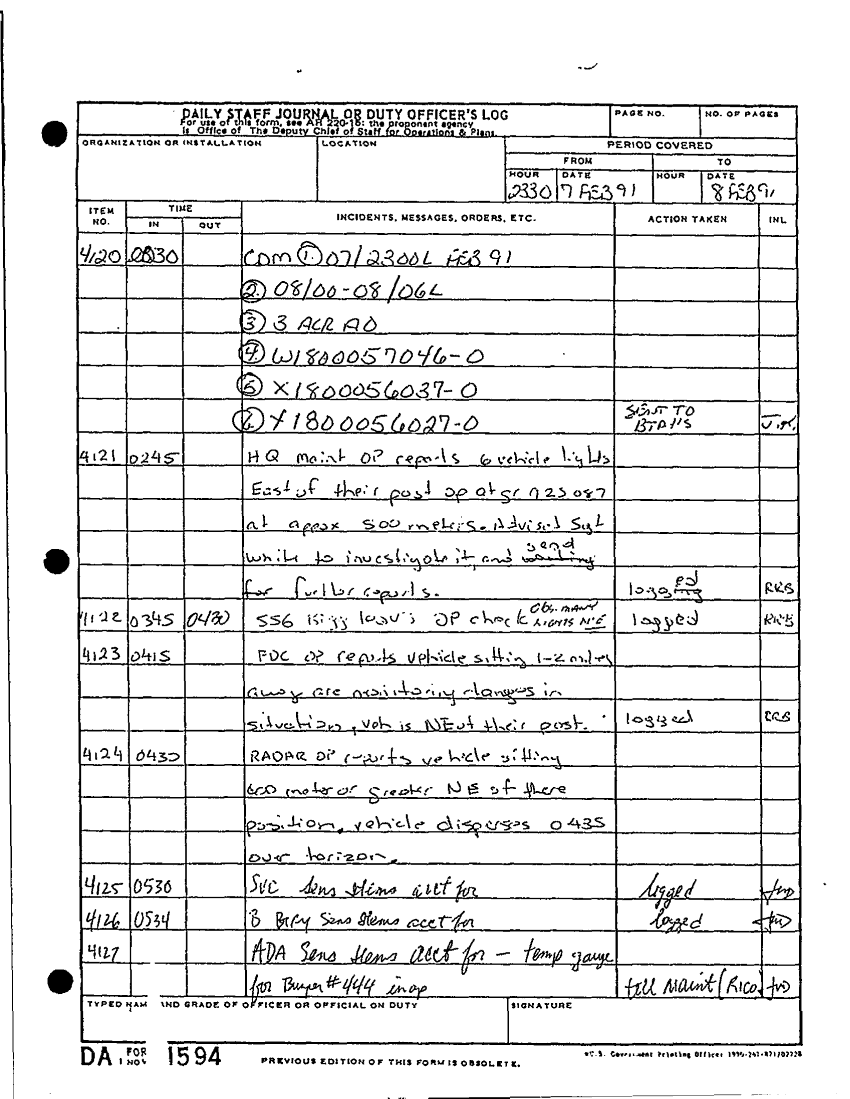 DAILY STAFF JOURNAL OR DUTY OFFICER'S LOG
For use of this form, see AR 220-15; the proponent agency
is Office of The Deputy Chief of Staff for Operations & Plans.
PAGE NO.
NO. OF PAGES
ORGANIZATION OR INSTALLATION
LOCATION
PERIOD COVERED
FROM
TO
HOUR DATE HOUR DATE
2330 7 FEB 91 8 FEB 91
ITEM NO. TIME IN OUT INCIDENTS, MESSAGES, ORDERS, ETC. ACTION TAKEN INL
4120 0030 CDM 1. 07/2300L FEB 91
2.) 08/00-08/06L
3) 3 ACR AO
4. W1800057046-0
5 X1800056037-0
6.) Y1800056027-0 SENT TO BTRY'S
4121 0245 HQ maint OP reports 6 vehicle lights
East of their post op at gr 723087
at appox 500 meters. Advised Sgt
while to investigate it, and send
for further reports. logged RRB
4122 0345 0430 SSG leav's OP check Obs. many lights N'E logged RRB
4123 0415 FDC OP reports vehicle sitting 1-2 miles
away are monitoring changes in
situation, veh is NE of their post. logged RRB
4124 0430 RADAR OP reports vehicle sitting
600 meter or greater NE of there
position, vehicle disperses 0435
over horizon.
4125 0530 SVC Sens Items acct for logged
4126 0534 B Btry Sens Items acct for logged
4127 ADA Sens Items acct for - temp gauge
for #444 inop tell Maint (Rico)
TYPED NAM AND GRADE OF OFFICER OR OFFICIAL ON DUTY
SIGNATURE
DA FOR 1 NOV 1594
PREVIOUS EDITION OF THIS FORM IS OBSOLETE.